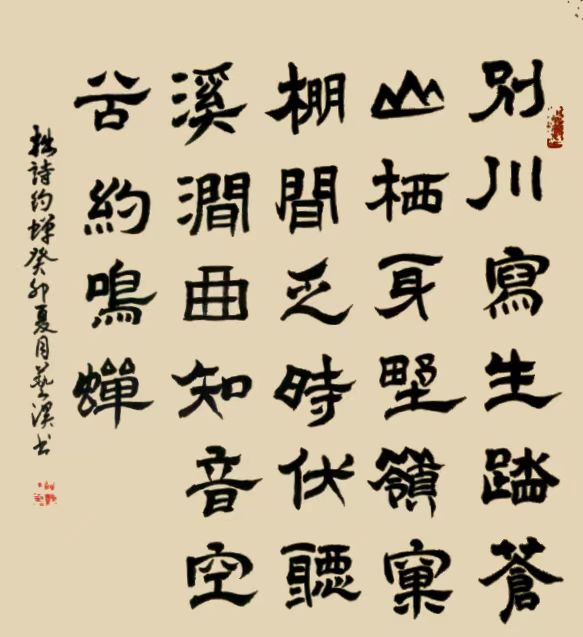 別川寫生踏蒼
山栖身野嶺窠
棚間乏時伏聽
溪澗曲知音空
谷約鳴蟬
拙詩約蟬癸卯夏月藝溪书